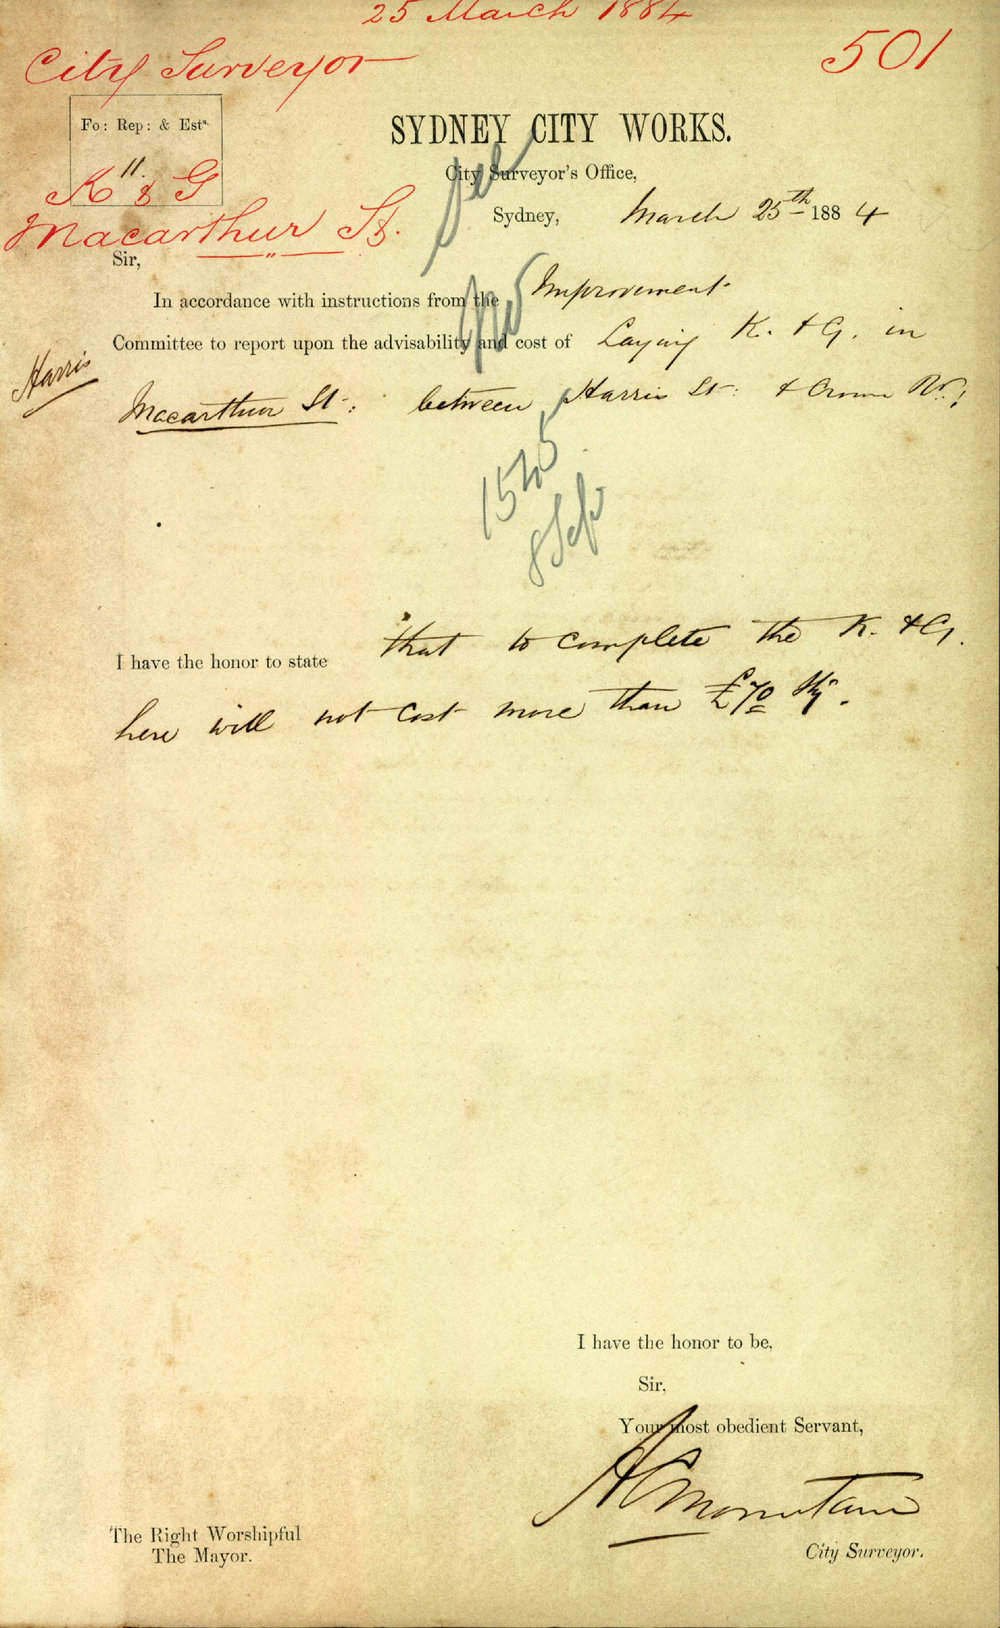 25 March 1884
City Surveyor
501
Fo: Rep: & Est^s.
11.
K & G
Macarthur St.
SYDNEY CITY WORKS.
City Surveyor's Office,
Sydney, March 25th 1884
See
No
Sir,
In accordance with instructions from the Improvement
Committee to report upon the advisability and cost of Laying K. & G. in
Harris
Macarthur St: between Harris St: & Crown Rd:
1545
8 Sep
I have the honor to state that to complete the K. & G.
here will not cost more than £70 Stg.
I have the honor to be,
Sir,
Your most obedient Servant,
A C Mountain
City Surveyor.
The Right Worshipful
The Mayor.